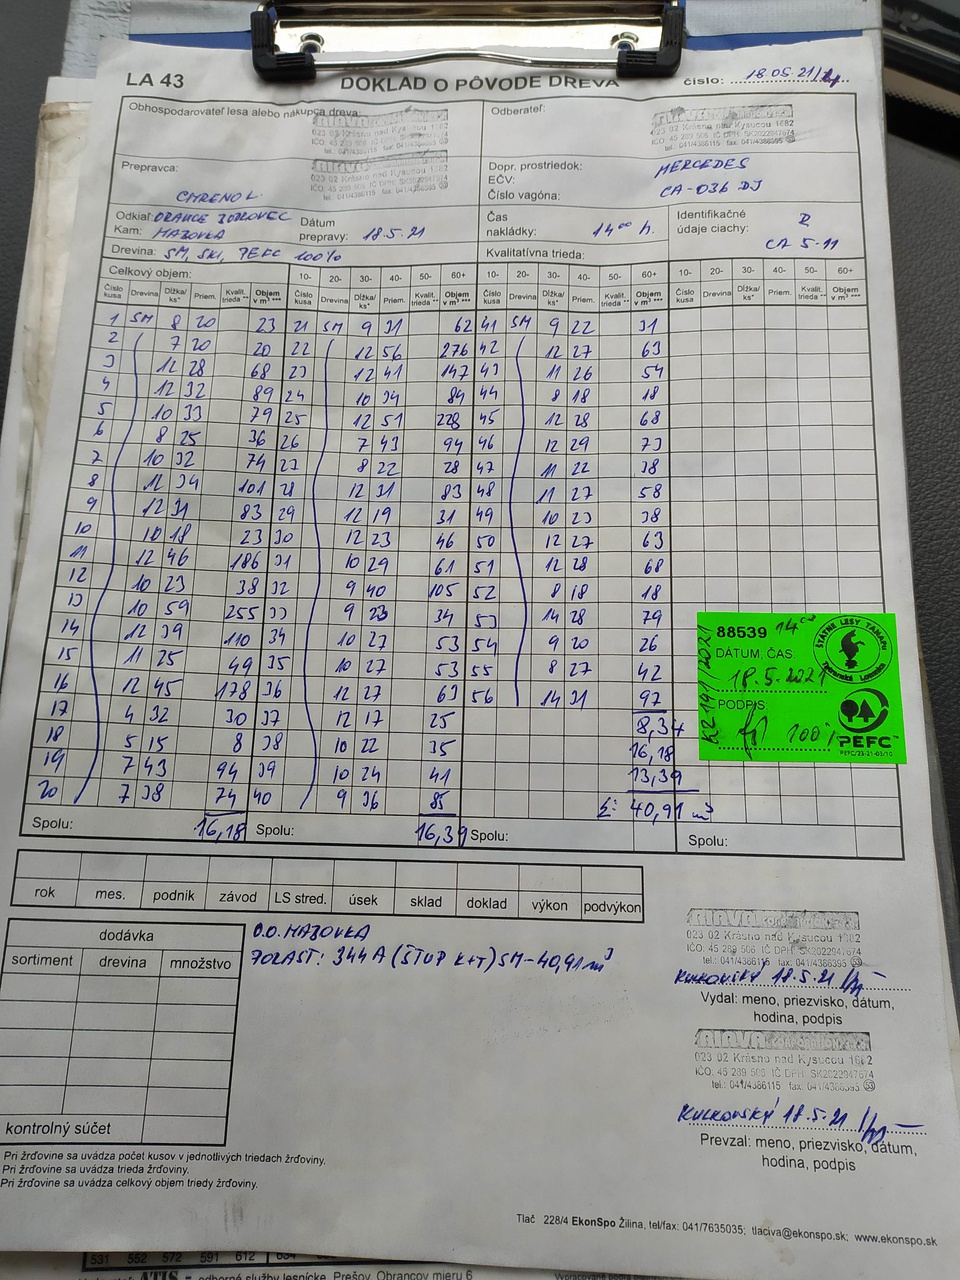 LA 43
DOKLAD O PÔVODE DREVA
číslo: 18.05.21/
Obhospodarovateľ lesa alebo nákupca dreva:
023 02 Krásno nad Kysucou 1682
Odberateľ:
023 02 Krásno nad Kysucou 1682
Prepravca:
023 02 Krásno nad Kysucou 1682
CHRENO L.
Dopr. prostriedok: MERCEDES
EČV: CA-036 DJ
Číslo vagóna:
Odkiaľ:
Kam: MAZOVKA
Dátum
prepravy: 18.5.21
Čas
nakládky: 14°° h.
Identifikačné
údaje ciachy:
CA 5-11
Drevina: SM, SKL, PEFC 100%
Kvalitatívna trieda:
Celkový objem: 10- 20- 30- 40- 50- 60+ 10- 20- 30- 40- 50- 60+ 10- 20- 30- 40- 50- 60+
Číslo kusa Drevina Dĺžka/ ks* Priem. Kvalit. trieda ** Objem v m³ *** Číslo kusa Drevina Dĺžka/ ks* Priem. Kvalit. trieda ** Objem v m³ *** Číslo kusa Drevina Dĺžka/ ks* Priem. Kvalit. trieda ** Objem v m³ *** Číslo kusa Drevina Dĺžka/ ks* Priem. Kvalit. trieda ** Objem v m³ ***
1 SM 8 20 23 21 SM 9 31 62 41 SM 9 22 31
2 7 20 20 22 12 56 276 42 12 27 63
3 12 28 68 23 12 41 147 43 11 26 54
4 12 32 89 24 10 34 84 44 8 18 18
5 10 33 79 25 12 51 228 45 12 28 68
6 8 25 36 26 7 43 94 46 12 29 73
7 10 32 74 27 8 22 28 47 11 22 38
8 11 34 101 28 12 31 83 48 11 27 58
9 12 31 83 29 12 19 31 49 10 23 38
10 10 18 23 30 12 23 46 50 12 27 63
11 12 46 186 31 10 29 61 51 12 28 68
12 10 23 38 32 9 40 105 52 8 18 18
13 10 59 255 33 9 23 34 53 14 28 79
14 12 39 110 34 10 27 53 54 9 20 26
15 11 25 49 35 10 27 53 55 8 27 42
16 12 45 178 36 12 27 63 56 14 31 97
17 4 32 30 37 12 17 25 8,34
18 5 15 8 38 10 22 35 16,18
19 7 43 94 39 10 24 41
20 7 38 74 40 9 36 85 Σ: 40,91 m³
Spolu: 16,18 Spolu: 16,39 Spolu: Spolu:
88539 14°°
DÁTUM, ČAS:
18.5.2021
PODPIS:
100%
ŠTÁTNE LESY TANAPU
Tatranská Lomnica
PEFC™
PEFC/23-21-03/10
rok mes. podnik závod LS stred. úsek sklad doklad výkon podvýkon
dodávka
sortiment drevina množstvo
kontrolný súčet
O.O. MAZOVKA
PORAST: 344A (ŠTUP K+T) SM-40,91 m³
023 02 Krásno nad Kysucou 1682
IČO: 45 289 506 IČ DPH: SK2022947674
tel.: 041/4386115 fax: 041/4386395
18.5.21
Vydal: meno, priezvisko, dátum,
hodina, podpis
023 02 Krásno nad Kysucou 1682
IČO: 45 289 506 IČ DPH: SK2022947674
tel.: 041/4386115 fax: 041/4386395
Kulkovský 18.5.21
Prevzal: meno, priezvisko, dátum,
hodina, podpis
Pri žrďovine sa uvádza počet kusov v jednotlivých triedach žrďoviny,
Pri žrďovine sa uvádza trieda žrďoviny.
Pri žrďovine sa uvádza celkový objem triedy žrďoviny.
Tlač 228/4 EkonSpo Žilina, tel/fax: 041/7635035; tlaciva@ekonspo.sk; www.ekonspo.sk
531 552 572 591 612 634
ATIS – odborné služby lesnícke, Prešov, Obrancov mieru 6